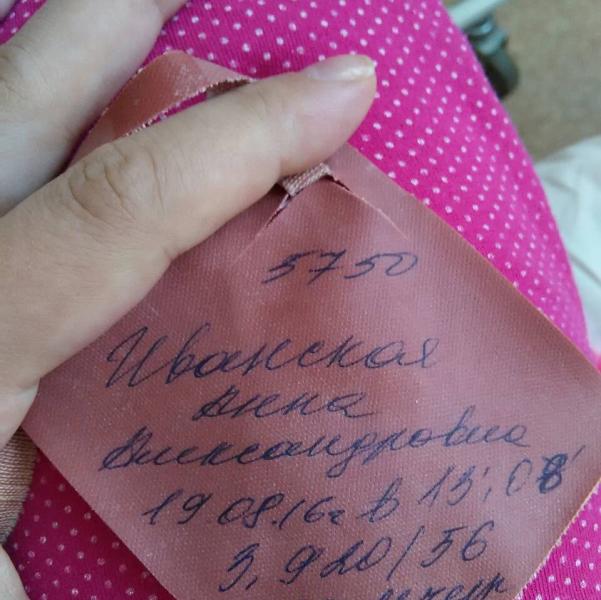 5750
Иванская
Анна
Александровна
19 08.16г в 13:08
3,920/56